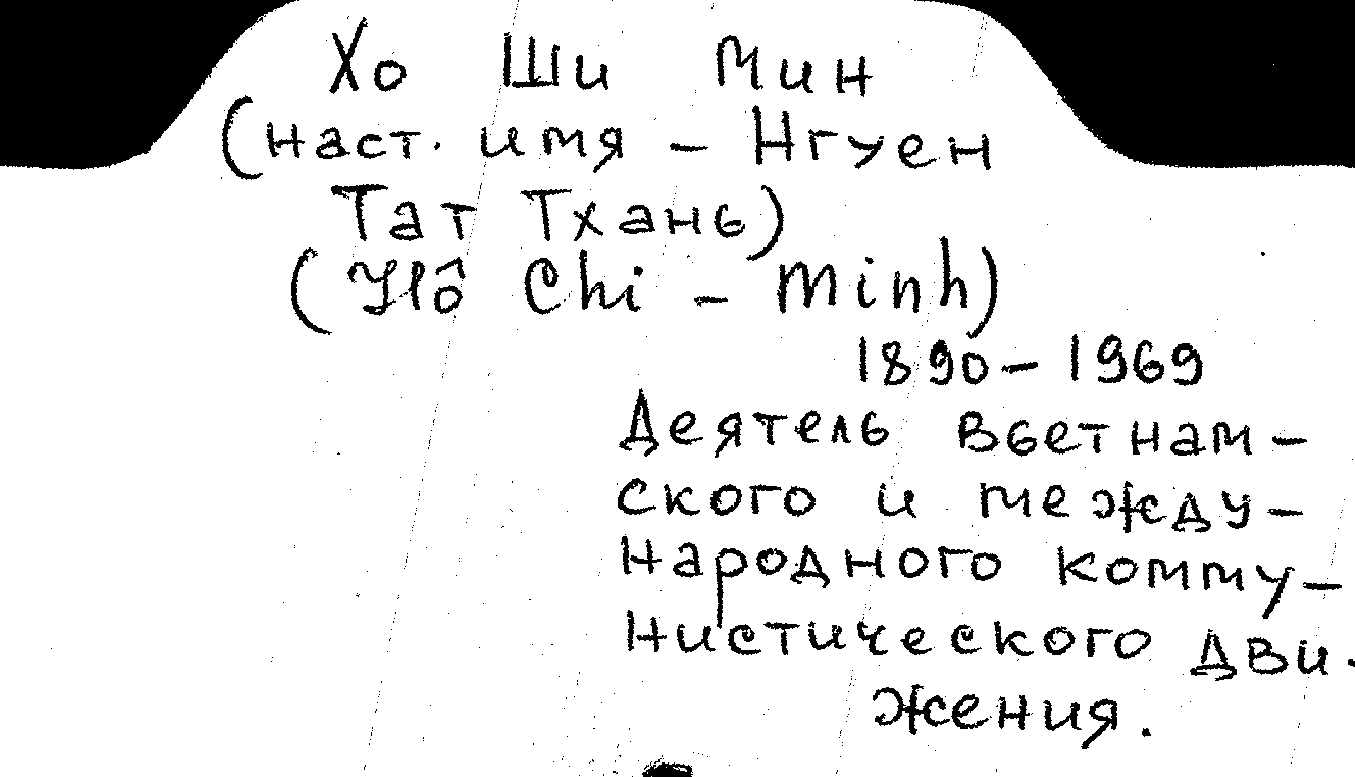 Хо Ши Мин
(наст. имя – Нгуен
Тат Тхань)
(Hô Chi – Minh)
1890 – 1969
Деятель вьетнам-
ского и между-
народного комму-
нистического дви.
жения.